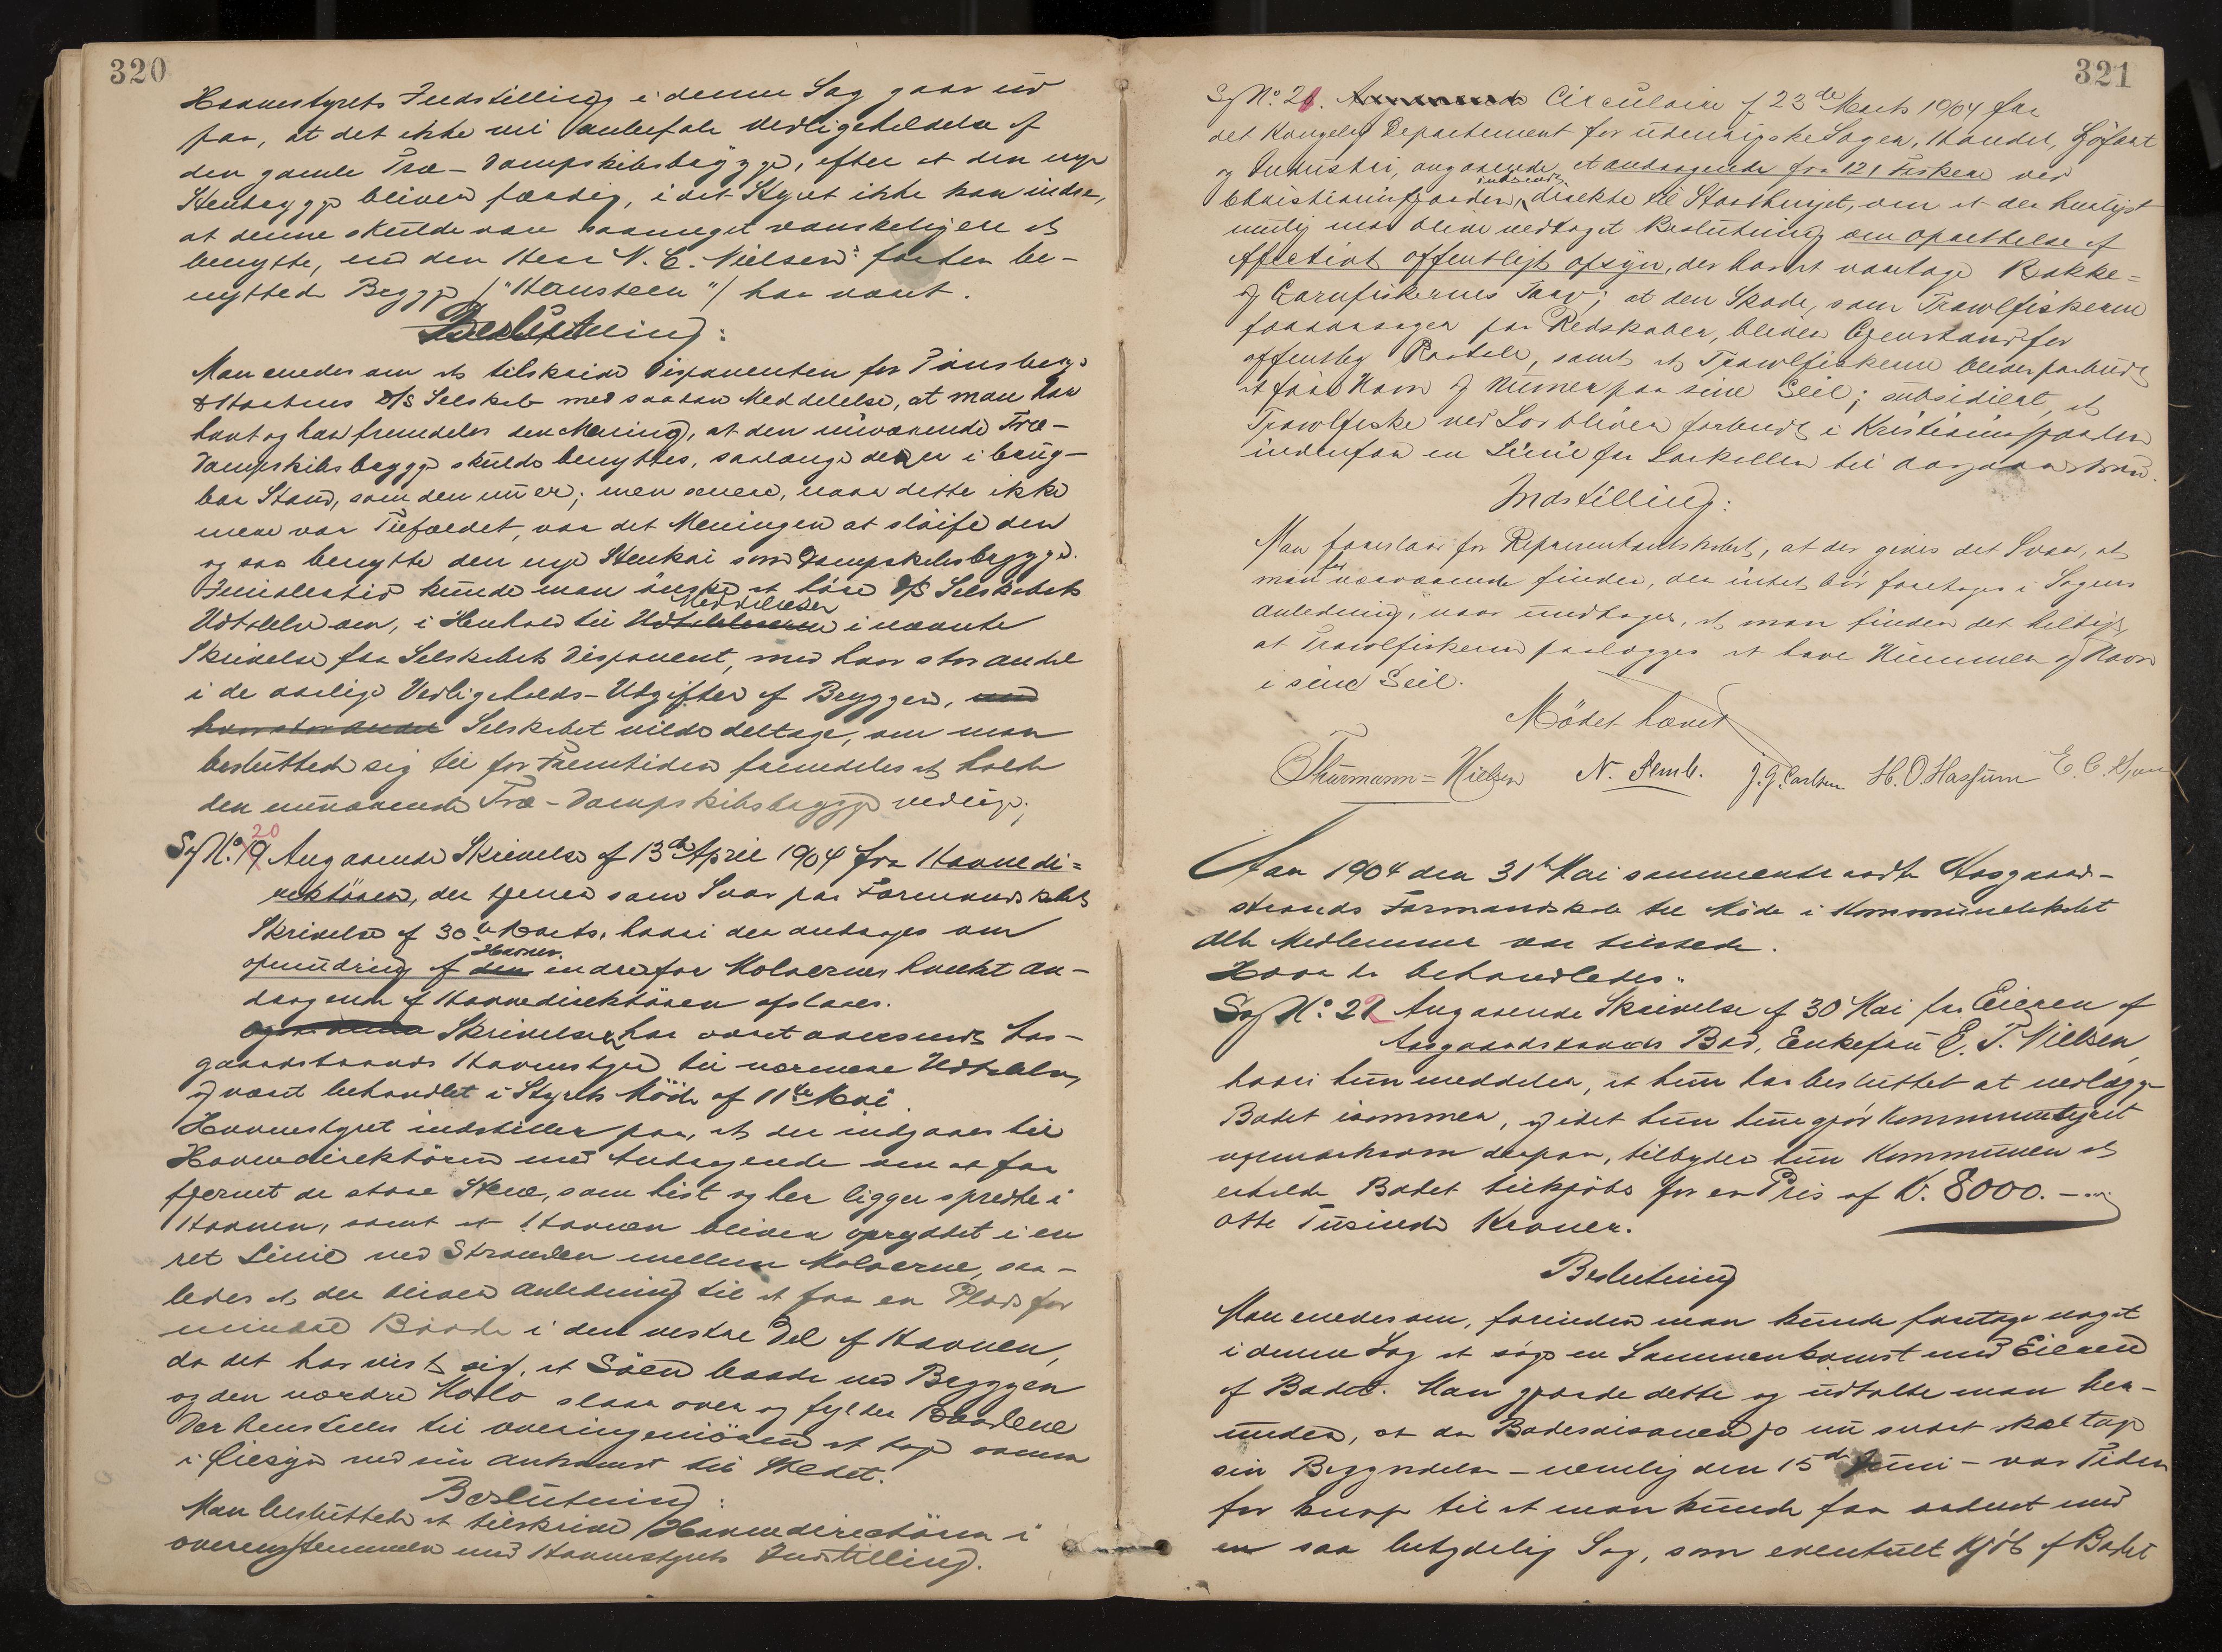 320
Havnestyrets Indstilling i denne Sag gaar ud
paa, at det ikke vil anbefale Vedligeholdelse af
den gamle Træ-Dampskibsbrygge, efter at den nye
Stenbrygge bliver færdig, idet Styret ikke kan indse,
at denne skulde være saameget vanskeligere at
benytte, end den Herr N. C. Nielsen før be-
nyttede Brygge ("Hansteen") har været.
Beslutning:
Man enedes om at tilskrive Disponenten for Tønsberg
& Hortens D/S Selskab med saadan Meddelelse, at man har
havt og har fremdeles den Mening, at den nuværende Træ-
Dampskibsbrygge skulde benyttes, saalænge den er i brug-
bar Stand, som den nu er; men senere, naar dette ikke
mere var Tilfældet, var det Meningen at sløife den
og saa benytte den nye Stenkai som Dampskibsbrygge.
Imidlertid kunde man ønske at høre D/S Selskabets
Udtalelse om, i Henhold til Udtalelserne Meddelelsen i nævnte
Skrivelse fra Selskabets Disponent, med hvor stor Andel
i de aarlige Vedligeholds-Udgifter af Bryggen, med
hvor stor Andel Selskabet vilde deltage, om man
besluttede sig til for Fremtiden fremdeles at holde
den nuværende Træ-Dampskibsbrygge vedlige.
Sag No. 19 20 Angaaende Skrivelse af 13de April 1904 fra Havnedi=
rektøren, der tjener som Svar paa Formandskabets
Skrivelse af 30te Marts, hvori der andrages om
opmudring af den Havnen indenfor Moloerne, hvilket An-
dragende af Havnedirektøren afslaaes.
Skrivelsen har været oversendt Aas-
gaardstrands Havnestyre til nærmere Udtalelse,
og været behandlet i Styrets Möde af 11te Mai
Havnestyret indstiller paa, at der indgaaes til
Havnedirektøren med Andragende om at faa
fjernet de store Stene, som hist og her ligger spredte i
Havnen, samt at Havnen bliver opryddet i en
ret Linie ved Stranden mellem Moloerne, saa-
ledes at der bliver Anledning til at faa en Plads for
mindre Baade i den vestre Del af Havnen,
da det har vist sig, at Søen baade ved Bryggen
og den nordre Molo slaar over og fylder Baadene
Der henstilles til Overingeniøren at tage samme
i Øiesyn ved sin Ankomst til Stedet.
Beslutning:
Man besluttede at tilskrive Havnedirectøren i
Overensstemmelse med Havnestyrets Indstilling.
321
Sag No. 21. Circulaire af 23de Marts 1904 fra
det Kongelige Departement for udenrigske Sager, Handel, Sjöfart
og Industri, angaaende et Andragende fra 121 Fiskere ved
Christianiafjorden, indsendt direkte til Storthinget, om at der hurtigst
mulig maa blive vedtaget Beslutning om oprettelse af
effectivt offentligt opsyn, der har at varetage Krokke=
og Garnfiskernes Tarv; at den Skade, som Trawlfiskerne
foraarsager paa Redskaber, bliver Gjenstand for
offentlig Paatale, samt at Trawlfiskerne bliver paabudt
at føre Navn og Numer paa sine Seil; subsidiert, at
Trawlfiske ved Lov bliver forbudt i Kristianiafjorden
indenfor en Linie fra Larkollen til Aasgaardstrand.
Indstilling:
Man foreslaar for Repræsentantskabet, at der gives det Svar, at
man for nærværende finder, der intet bør foretages i Sagens
Anledning, naar undtages, at man finder det heldigt,
at Trawlfiskerne paalægges at have Nummer og Navn
i sine Seil.
Mödet hævet
Thurmann=Nielsen N. Semb. J. G. Carlsen H. O. Hassum E. C.
Aar 1904 den 31te Mai sammentraadte Aasgaard-
strands Formandskab til Möde i Kommunelokalet
Alle Medlemmer var tilstede.
Hvor da behandledes:
Sag No. 22 Angaaende Skrivelse af 30 Mai fra Eieren af
Aasgaardstrands Bad, Enkefru E. T. Nielsen,
hvori hun meddeler, at hun har besluttet at nedlægge
Badet isommer, og idet hun gjör Kommunestyret
opmerksom derpaa, tilbyder hun Kommunen at
erholde Badet tilkjøbs for en Pris af Kr. 8000.—
otte Tusinde Kroner.
Beslutning
Man enedes om, forinden man kunde foretage noget
i denne Sag at søge en Sammenkomst med Eieren
af Badet. Man gjorde dette og udtalte man her-
under, at da Badesaisonen jo nu snart skal tage
sin Begyndelse – nemlig den 15de Juni – var Tiden
for knap til at man kunde faa ordnet med
en saa betydelig Sag, som eventuelt Kjøb af Badet